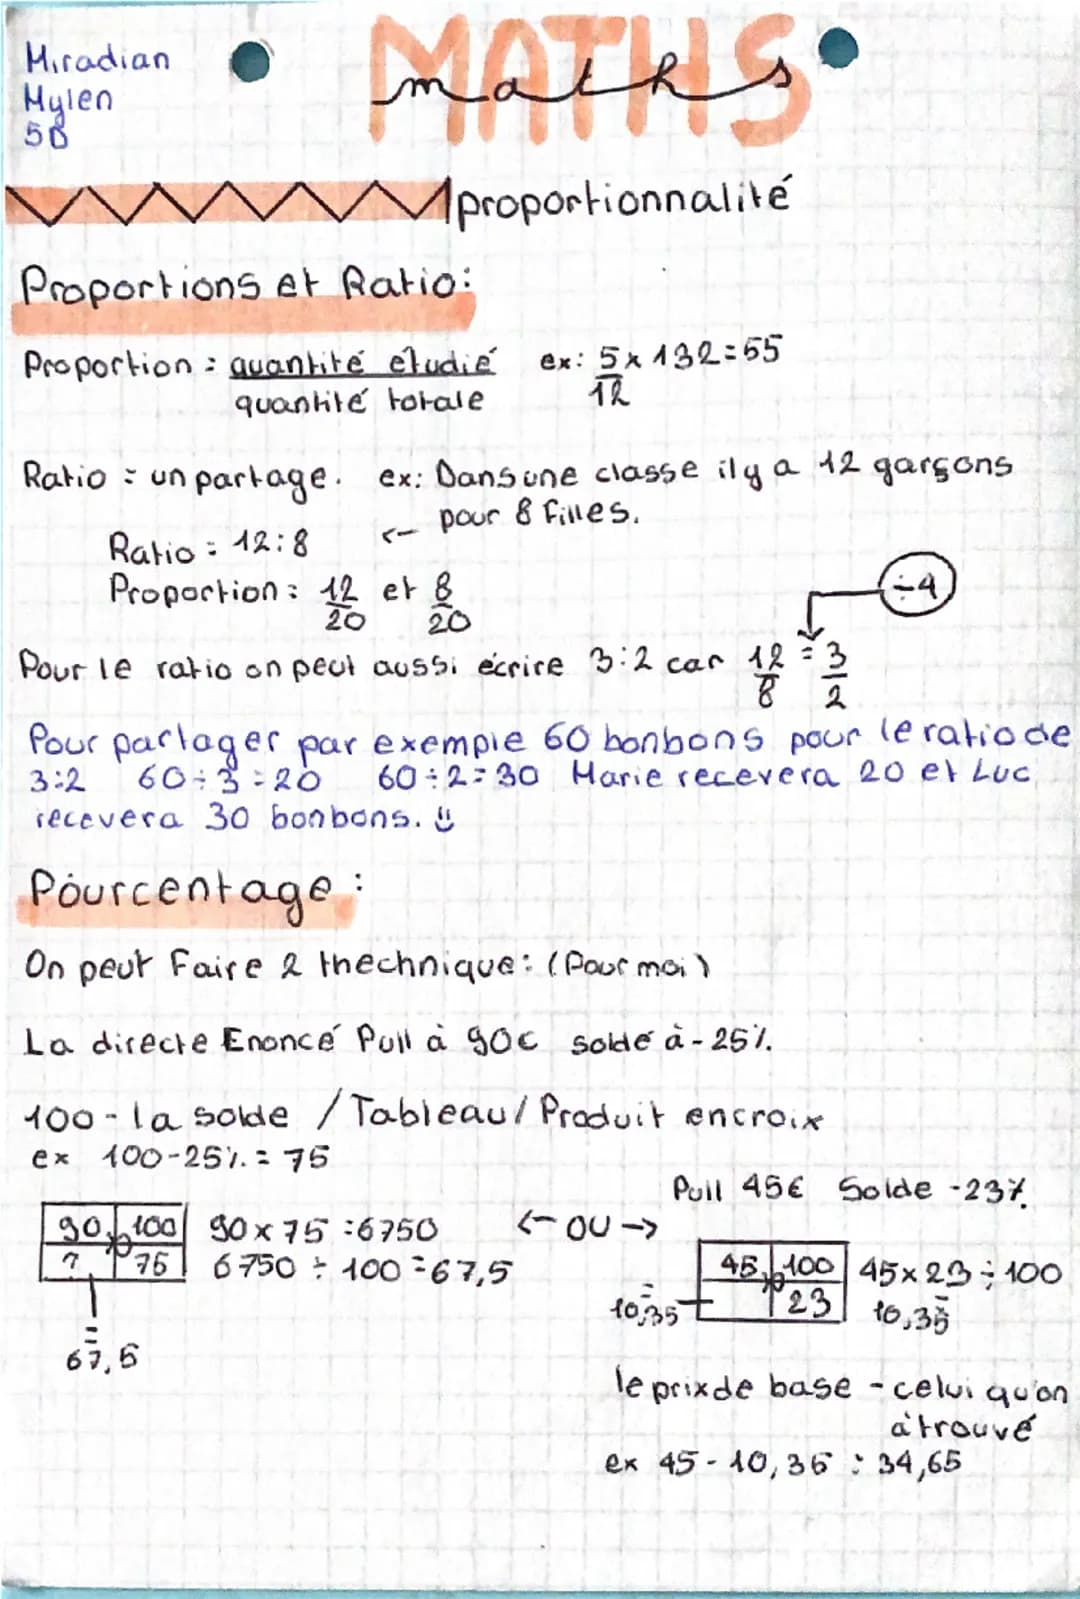 Miradian
Mylen
5B
MATHS
maths
proportionnalité
Proportions et Ratio:
Proportion : quantité étudié ex: 5 x 132=55
quantité totale 12
Ratio = un partage. ex: Dans une classe il y a 12 garçons
pour 8 filles.
Ratio = 12:8 <-
Proportion: 12 et 8
20 20
÷4
Pour le ratio on peut aussi écrire 3:2 car 12 = 3
8 2
Pour partager par exemple 60 bonbons pour le ratio de
3:2 60÷3=20 60÷2=30 Marie recevera 20 et Luc
recevera 30 bonbons.
Pourcentage :
On peut Faire 2 thechnique: (Pour moi)
La directe Enoncé Pull à 90€ soldé à -25%.
100 - la solde / Tableau / Produit en croix
ex 100-25%.= 75
Pull 45€ Solde -23%.
90 100 90 x 75 =6750 <- OU ->
? 75 6750 ÷ 100 =67,5
=
67,5
45 100 45x23÷100
23 =
= 10,35
10,35
le prix de base - celui qu'on
à trouvé
ex 45 - 10,35 = 34,65